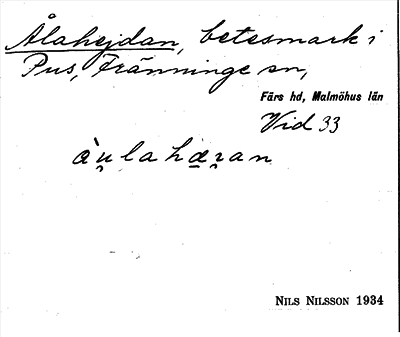 Ålahejdan, betesmark i
Pus, Tränninge sn,
Färs hd, Malmöhus län
Vid 33
àu̯lahæran
NILS NILSSON 1934